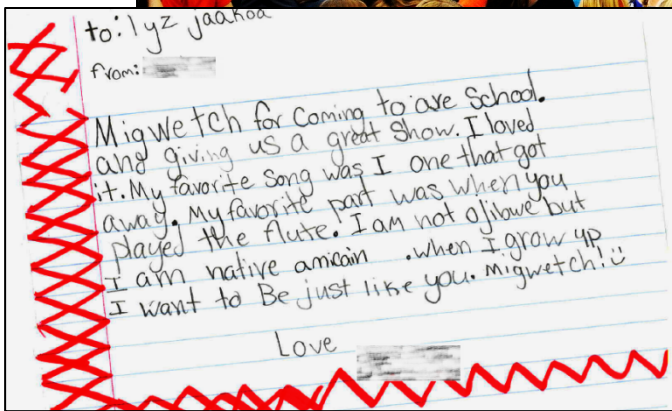 to: lyz jaakoa
from:
Migwetch for coming to are School.
and giving us a great show. I loved
it. My favorite song was I one that got
away. My favorite part was when you
played the flute. I am not ojibwe but
I am native amicain .when I grow up
I want to Be just like you. Migwetch!
Love